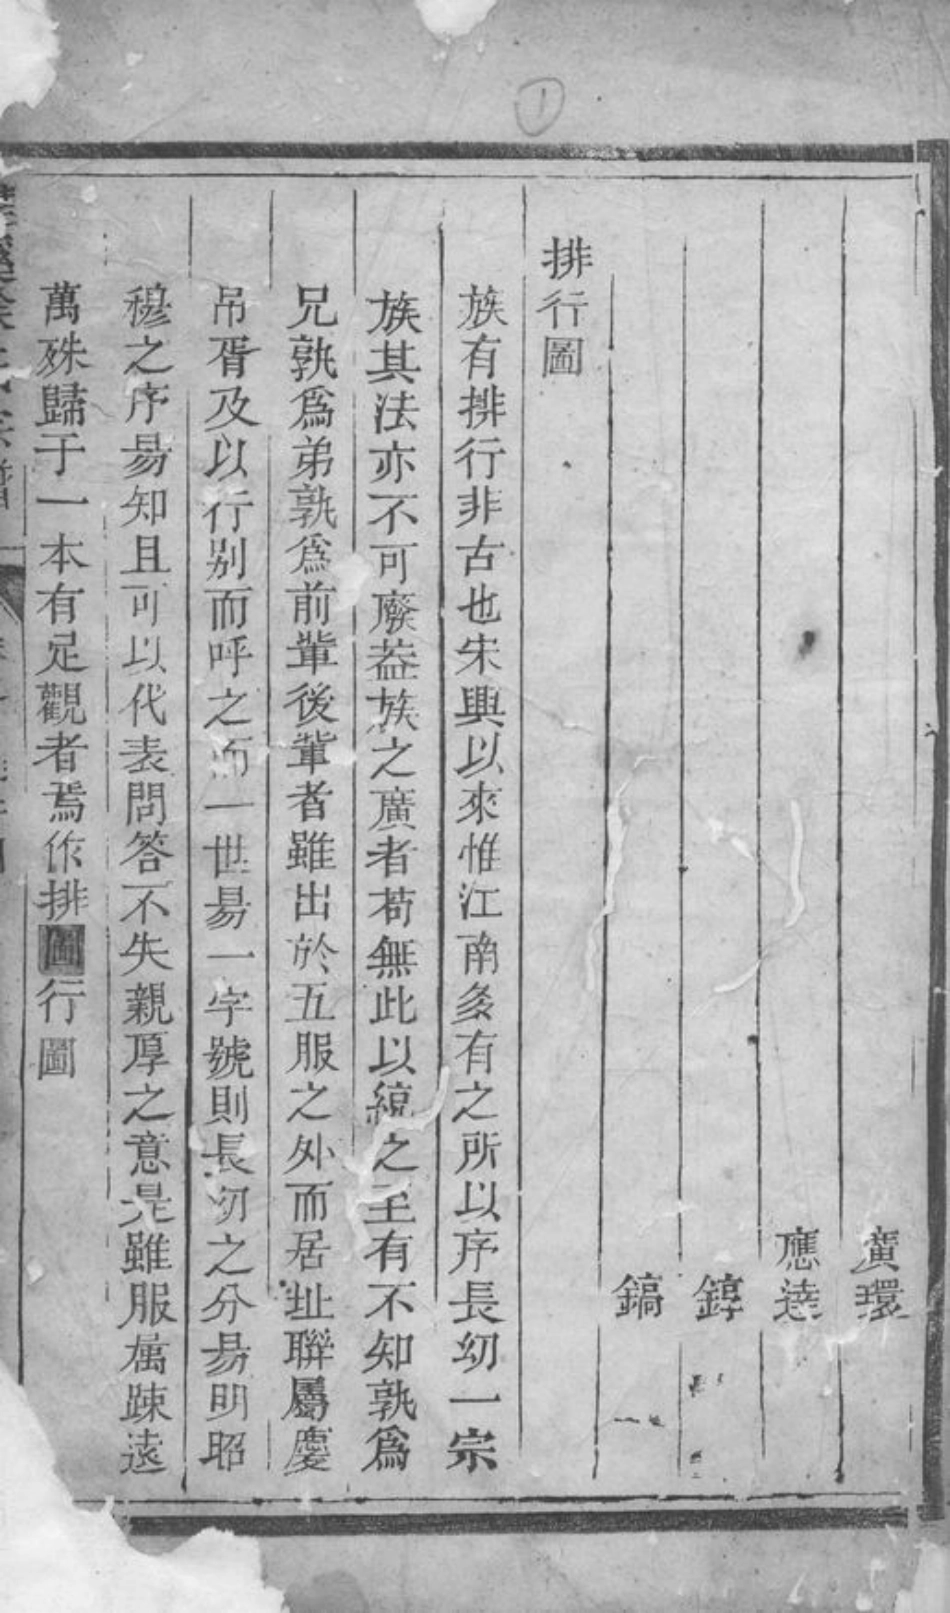 ①
廣環
應達
錞
鎬
排行圖
族有排行非古也宋興以來惟江南多有之所以序長幼一宗
族其法亦不可廢葢族之廣者苟無此以統之至有不知孰爲
兄孰爲弟孰爲前軰後軰者雖出於五服之外而居址聯屬慶
吊胥及以行别而呼之而一世昜一字號則長幼之分昜明昭
穆之序昜知且可以代表問答不失親厚之意是雖服属踈遠
萬殊歸于一本有足觀者焉作排圖行圖